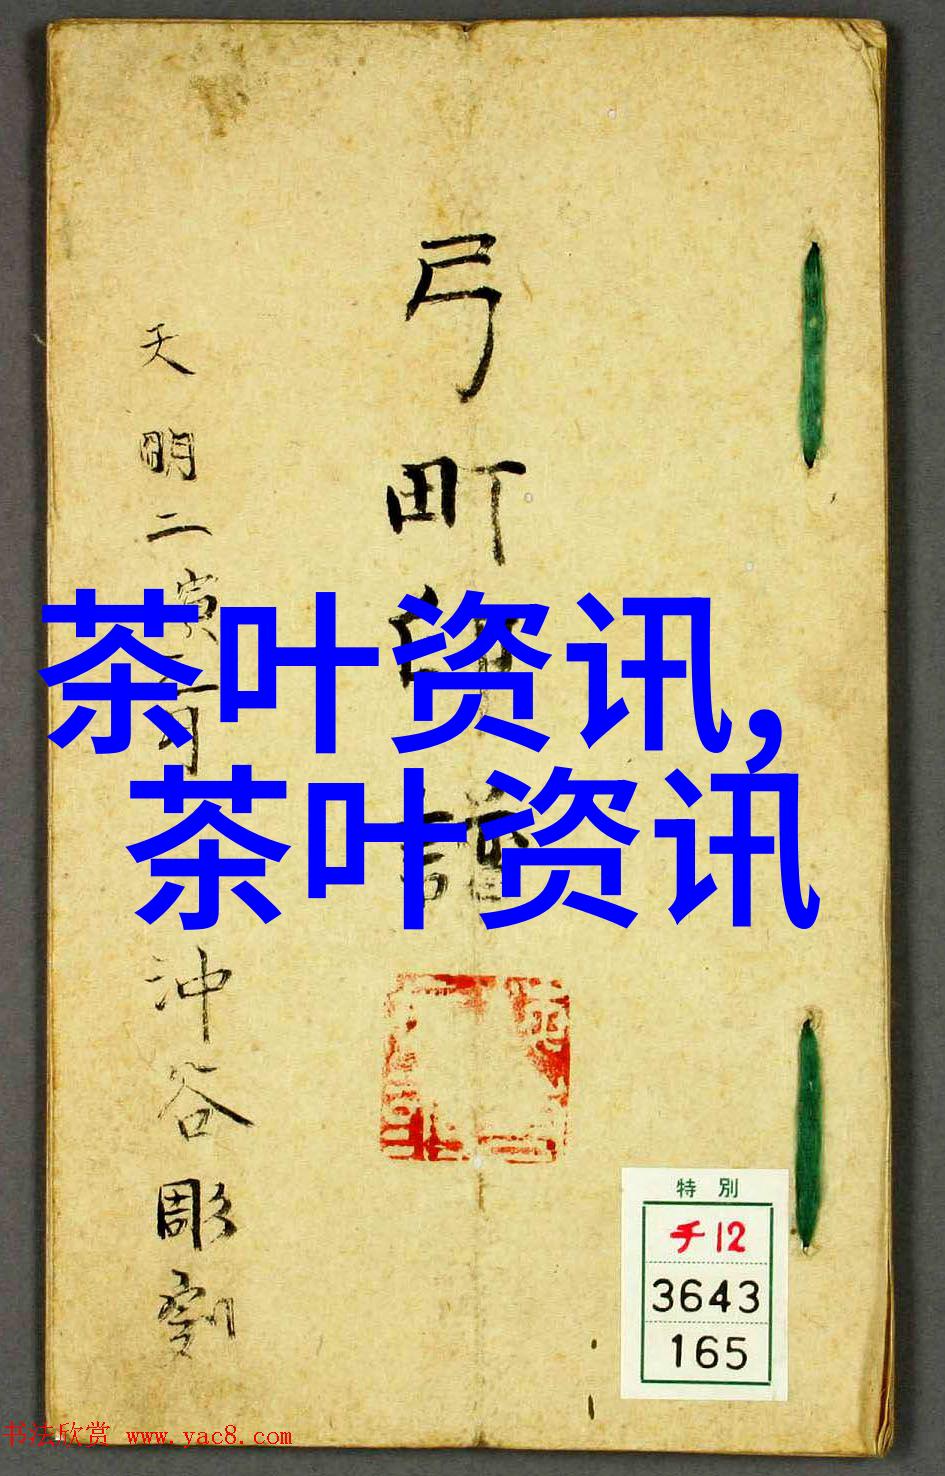 弓町印譜
天明二寅
沖谷彫刻
茶叶资讯,
茶叶资讯
特別
チ12
3643
165
书法欣赏 www.yac8.com